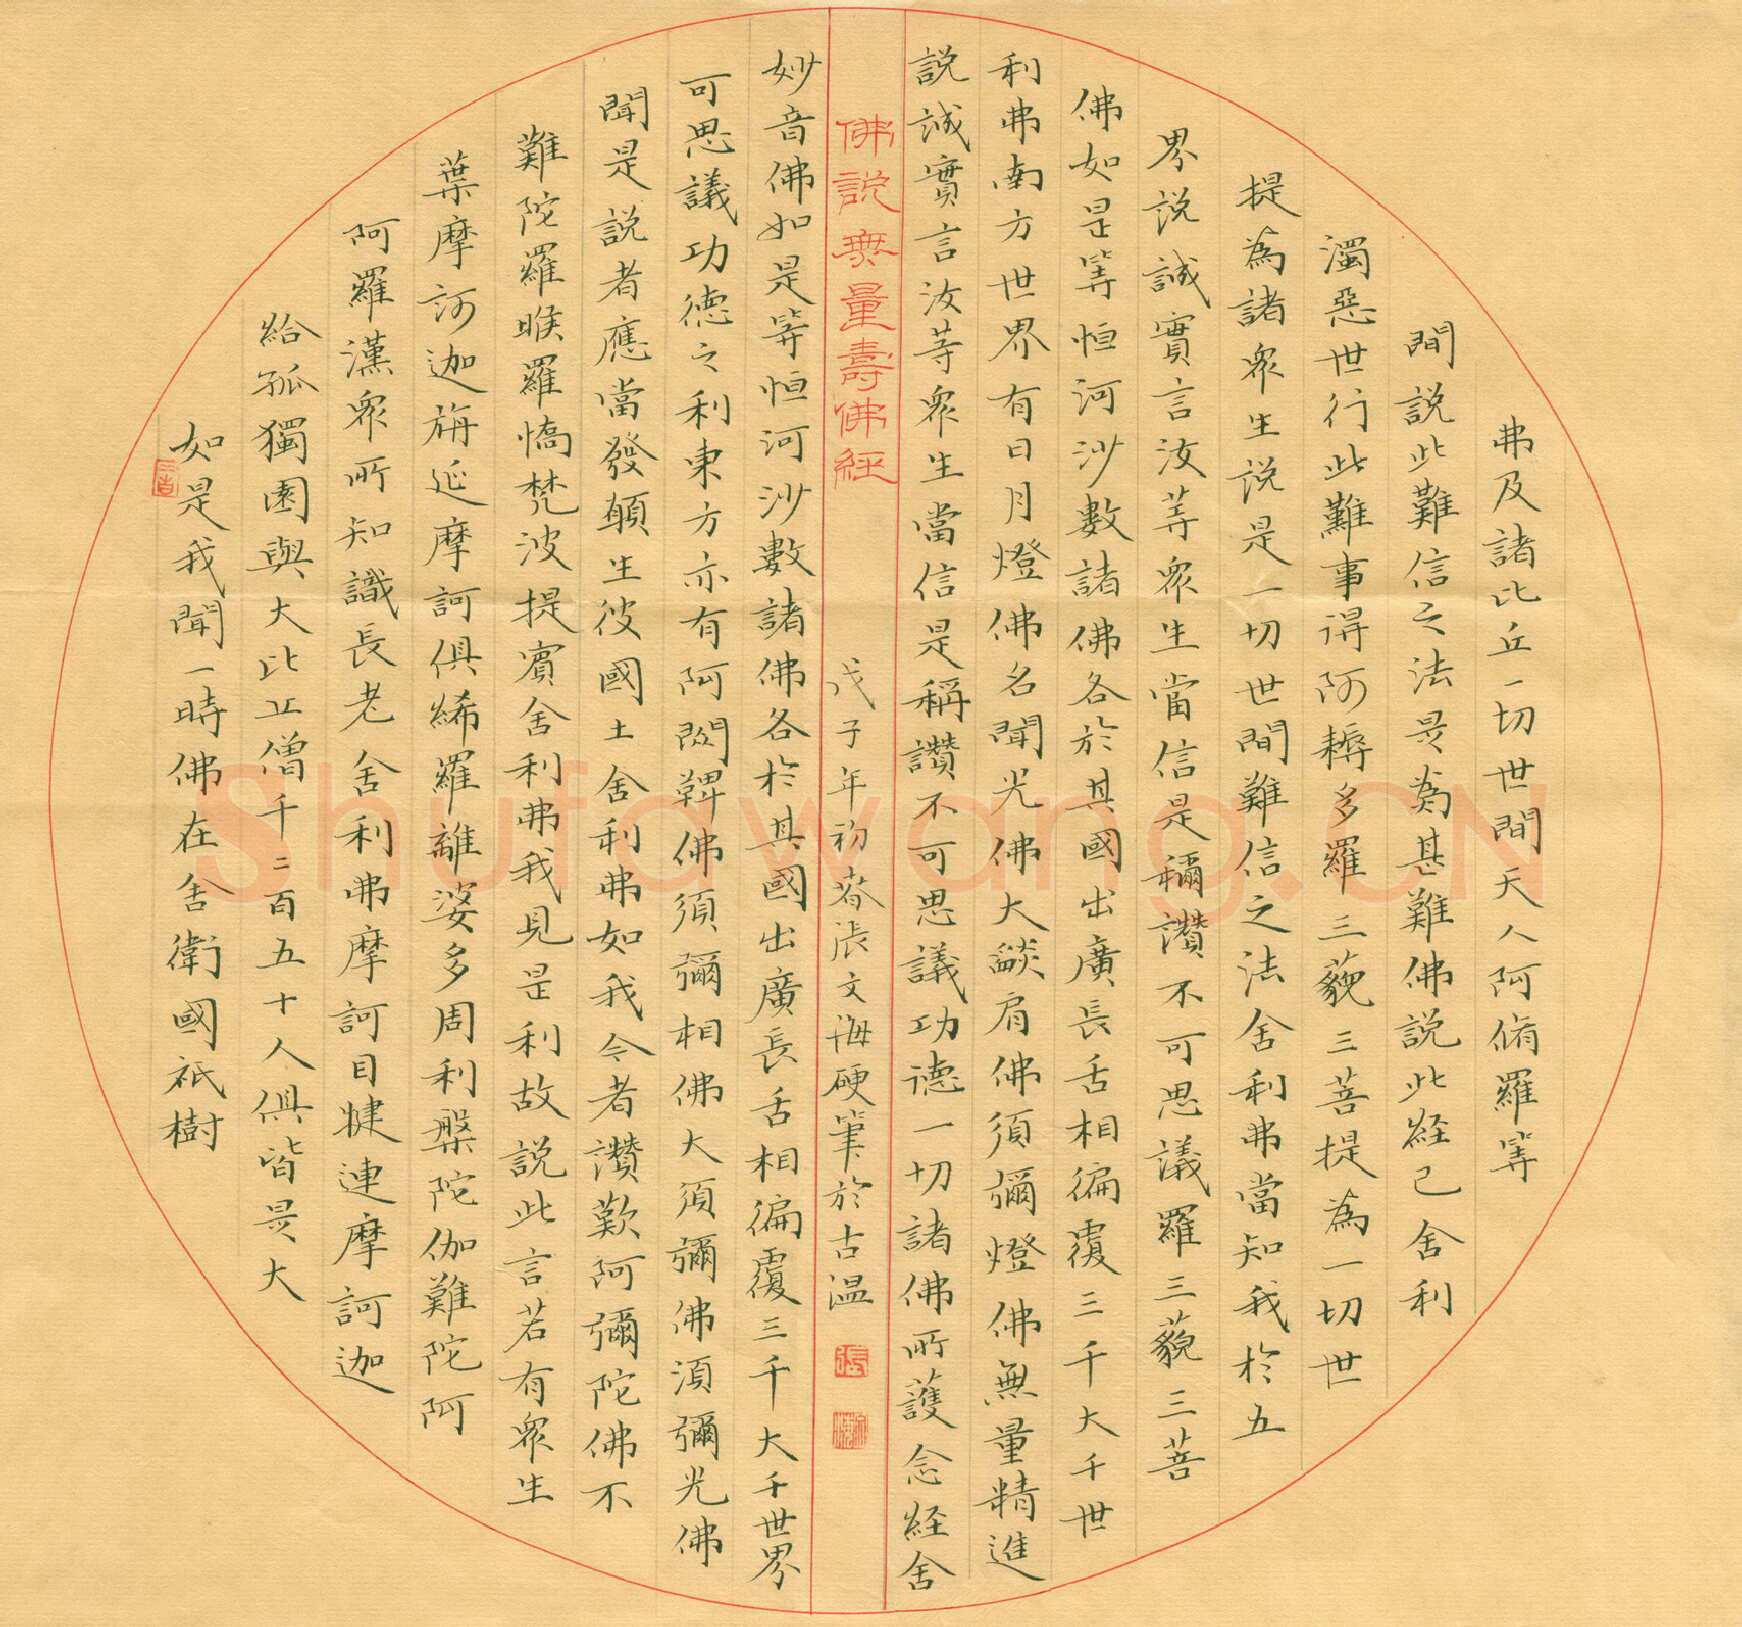 如是我聞一時佛在舍衛國祇樹
給孤獨園與大比丘僧千二百五十人俱皆是大
阿羅漢衆所知識長老舍利弗摩訶目犍連摩訶迦
葉摩訶迦旃延摩訶俱絺羅離婆多周利槃陀伽難陀阿
難陀羅睺羅憍梵波提賓舍利弗我見是利故說此言若有衆生
聞是說者應當發願生彼國土舍利弗如我今者讚歎阿彌陀佛不
可思議功德之利東方亦有阿閦鞞佛須彌相佛大須彌佛須彌光佛
妙音佛如是等恒河沙數諸佛各於其國出廣長舌相徧覆三千大千世界
佛說無量壽佛經
戊子年初春張文海硬筆於古溫
說誠實言汝等衆生當信是稱讚不可思議功德一切諸佛所護念経舍
利弗南方世界有日月燈佛名聞光佛大燄肩佛須彌燈佛無量精進
佛如是等恒河沙數諸佛各於其國出廣長舌相徧覆三千大千世
界說誠實言汝等衆生當信是稱讚不可思議羅三藐三菩
提為諸衆生說是一切世間難信之法舍利弗當知我於五
濁惡世行此難事得阿耨多羅三藐三菩提為一切世
間說此難信之法是為甚難佛說此経已舍利
弗及諸比丘一切世間天人阿脩羅等
Shufawang.CN